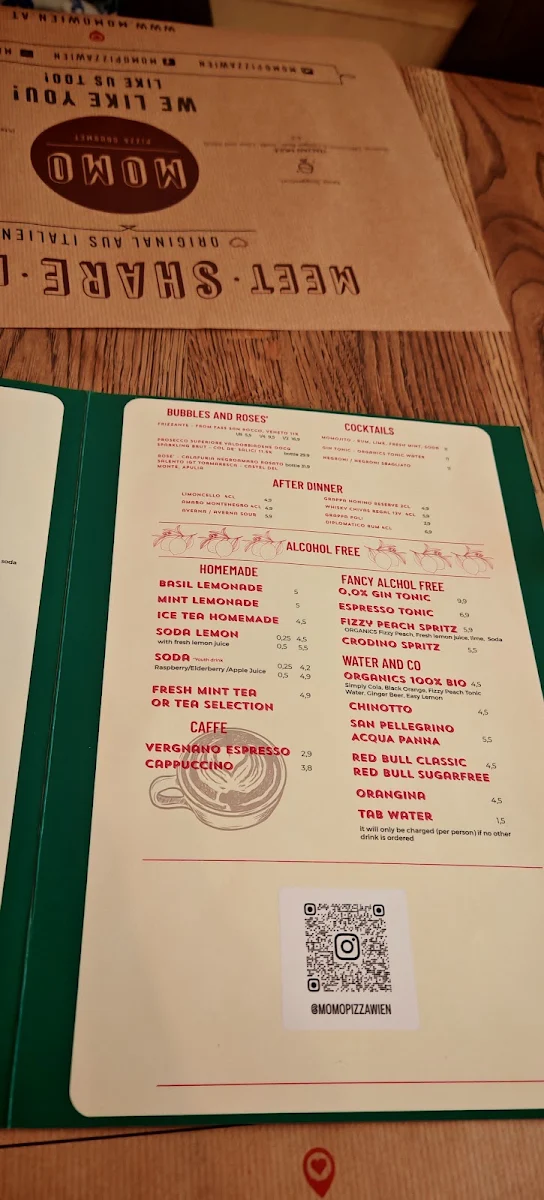 WWW.MOMOWIEN.AT
MOMOPIZZAWIEN
MOMOPIZZAWIEN
LIKE US TOO!
WE LIKE YOU!
MOMO
PIZZA GOURMET
ORIGINAL AUS ITALIEN
MEET · SHARE ·
soda
BUBBLES AND ROSES'
FRIZZANTE - FROM FASS SON ROCCO, VENETO 11%
PROSECCO SUPERIORE VALDOBBIADENE DOCG
SPARKLING BRUT - COL DE' SALICI 11.5%
bottle 29,9
ROSE' - CALAFURIA NEGROAMARO ROSATO bottle 31,9
SALENTO IGT TORMARESCA - CASTEL DEL
MONTE, APULIA
COCKTAILS
MOMOJITO - RUM, LIME, FRESH MINT, SODA
GIN TONIC - ORGANICS TONIC WATER
NEGRONI / NEGRONI SBAGLIATO
AFTER DINNER
LIMONCELLO 4CL 4,9
AMARO MONTENEGRO 4CL 4,9
AVERNA / AVERNA SOUR 5,9
GRAPPA NONINO RESERVE 2CL 4,9
WHISKY CHIVAS REGAL 12Y 4CL 5,9
GRAPPA POLI 3,9
DIPLOMATICO RUM 4CL 6,9
ALCOHOL FREE
HOMEMADE
BASIL LEMONADE 5
MINT LEMONADE 5
ICE TEA HOMEMADE 4,5
SODA LEMON 0,25 4,5
with fresh lemon juice 0,5 5,5
SODA -Youth drink 0,25 4,2
Raspberry/Elderberry /Apple Juice 0,5 4,9
FRESH MINT TEA 4,9
OR TEA SELECTION
CAFFE
VERGNANO ESPRESSO 2,9
CAPPUCCINO 3,8
FANCY ALCHOL FREE
0,0% GIN TONIC 9,9
ESPRESSO TONIC 6,9
FIZZY PEACH SPRITZ 5,9
ORGANICS Fizzy Peach, Fresh lemon juice, lime, Soda
CRODINO SPRITZ 5,5
WATER AND CO
ORGANICS 100% BIO 4,5
Simply Cola, Black Orange, Fizzy Peach Tonic
Water, Ginger Beer, Easy Lemon
CHINOTTO 4,5
SAN PELLEGRINO
ACQUA PANNA 5,5
RED BULL CLASSIC 4,5
RED BULL SUGARFREE
ORANGINA 4,5
TAB WATER 1,5
It will only be charged (per person) if no other
drink is ordered
@MOMOPIZZAWIEN